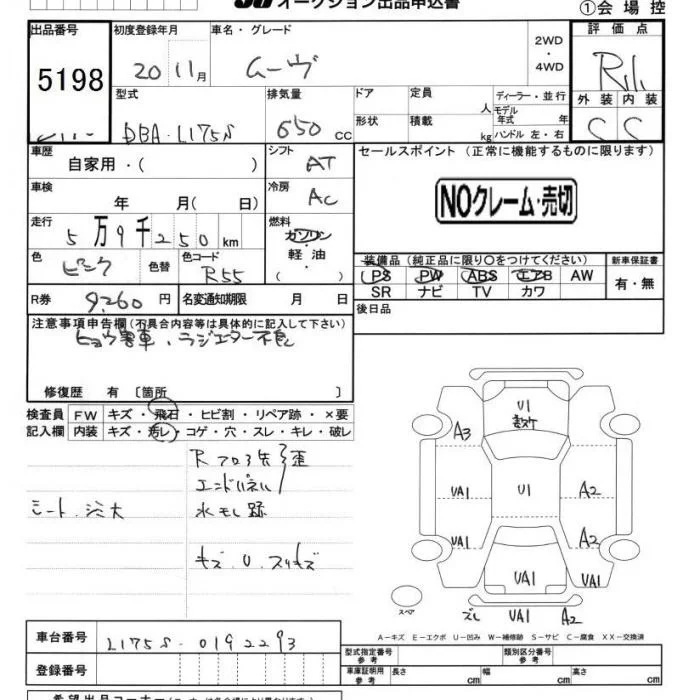 オークション出品申込書
①会場控
出品番号 初度登録年月 車名・グレード 評価点
5198 20 11月 ムーヴ 2WD・4WD R1
型式 排気量 ドア 定員 人 ディーラー・並行 外装 内装
DBA-L175S 650cc 形状 積載 kg モデル年式 年 ハンドル 左・右 C C
車歴 自家用・( ) シフト AT セールスポイント (正常に機能するものに限ります)
車検 年 月( 日) 冷房 AC NOクレーム・売切
走行 5万9千250km 燃料 ガソリン・軽油・( )
色 ピンク 色替 色コード R55 装備品(純正品に限り○をつけてください) 新車保証書
PS PW ABS エアB AW 有・無
R券 9,260円 名変通知期限 月 日 SR ナビ TV カワ
後日品
注意事項申告欄(不具合内容等は具体的に記入して下さい)
ヒョウ害車、ラジエター不良
修復歴 有 〔箇所 〕
検査員 FW キズ・飛石・ヒビ割・リペア跡・×要
記入欄 内装 キズ・汚レ・コゲ・穴・スレ・キレ・破レ
Rフロア缶歪
エンドパネル
水モレ跡
キズ.U.スリキズ
U1
A3
UA1 U1 A2
UA1 A2
UA1 UA1
スペア ズレ UA1 A2
A−キズ E−エクボ U−凹み W−補修跡 S−サビ C−腐食 XX−交換済
車台番号 L175S-0192293 型式指定番号 参考 類別区分番号 参考
登録番号 車庫証明用 参考 長さ cm 幅 cm 高さ cm